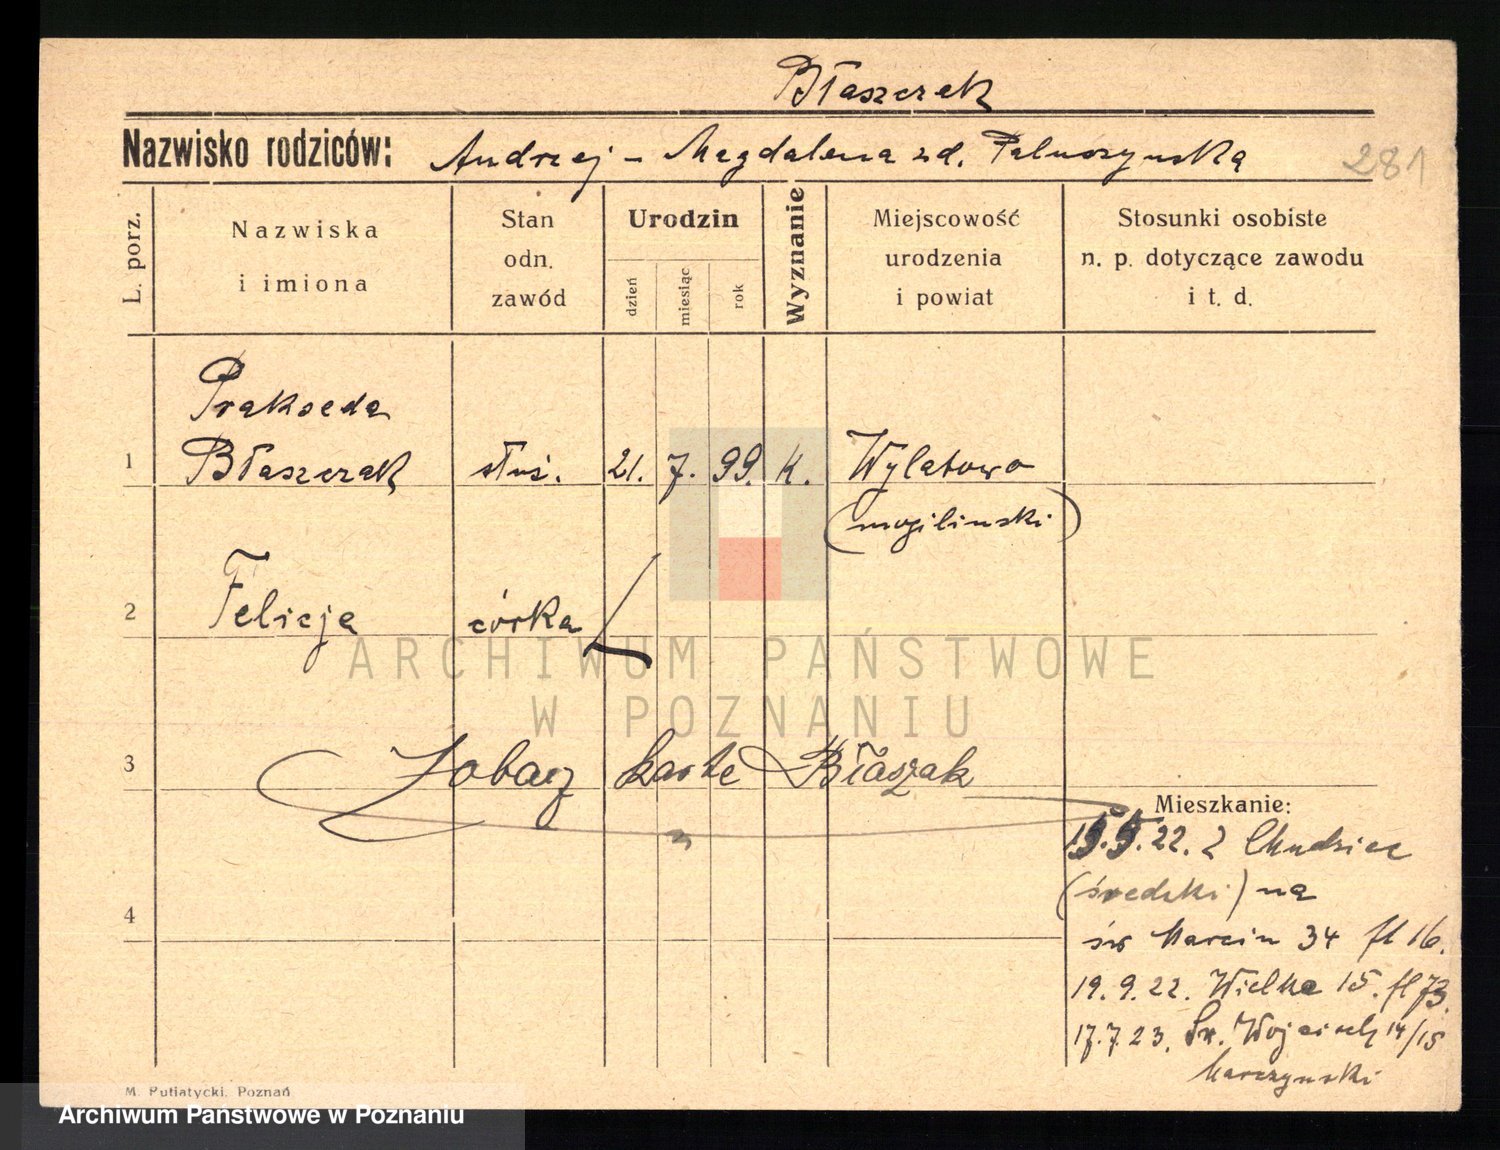 Błaszczak
Nazwisko rodziców: Andrzej - Magdalena zd. Paluszyńska
281
L. porz.
Nazwiska
i imiona
Stan
odn.
zawód
Urodzin
dzień
miesiąc
rok
Wyznanie
Miejscowość
urodzenia
i powiat
Stosunki osobiste
n. p. dotyczące zawodu
i t. d.
Prakseda
1 Błaszczak służ. 21. 7. 99. k. Wylatowo
(mogilinski)
2 Felicja córka
ARCHIWUM PAŃSTWOWE
W POZNANIU
3 Zobacz kartę Błaszak
Mieszkanie:
15.5.22. z
(średzki) na
4
św Marcin 34 fl 16.
19.9.22. Wielka 15. fl 73.
17.7.23. Św. Wojciech 14/15
Marczynski
M. Putiatycki, Poznań
Archiwum Państwowe w Poznaniu